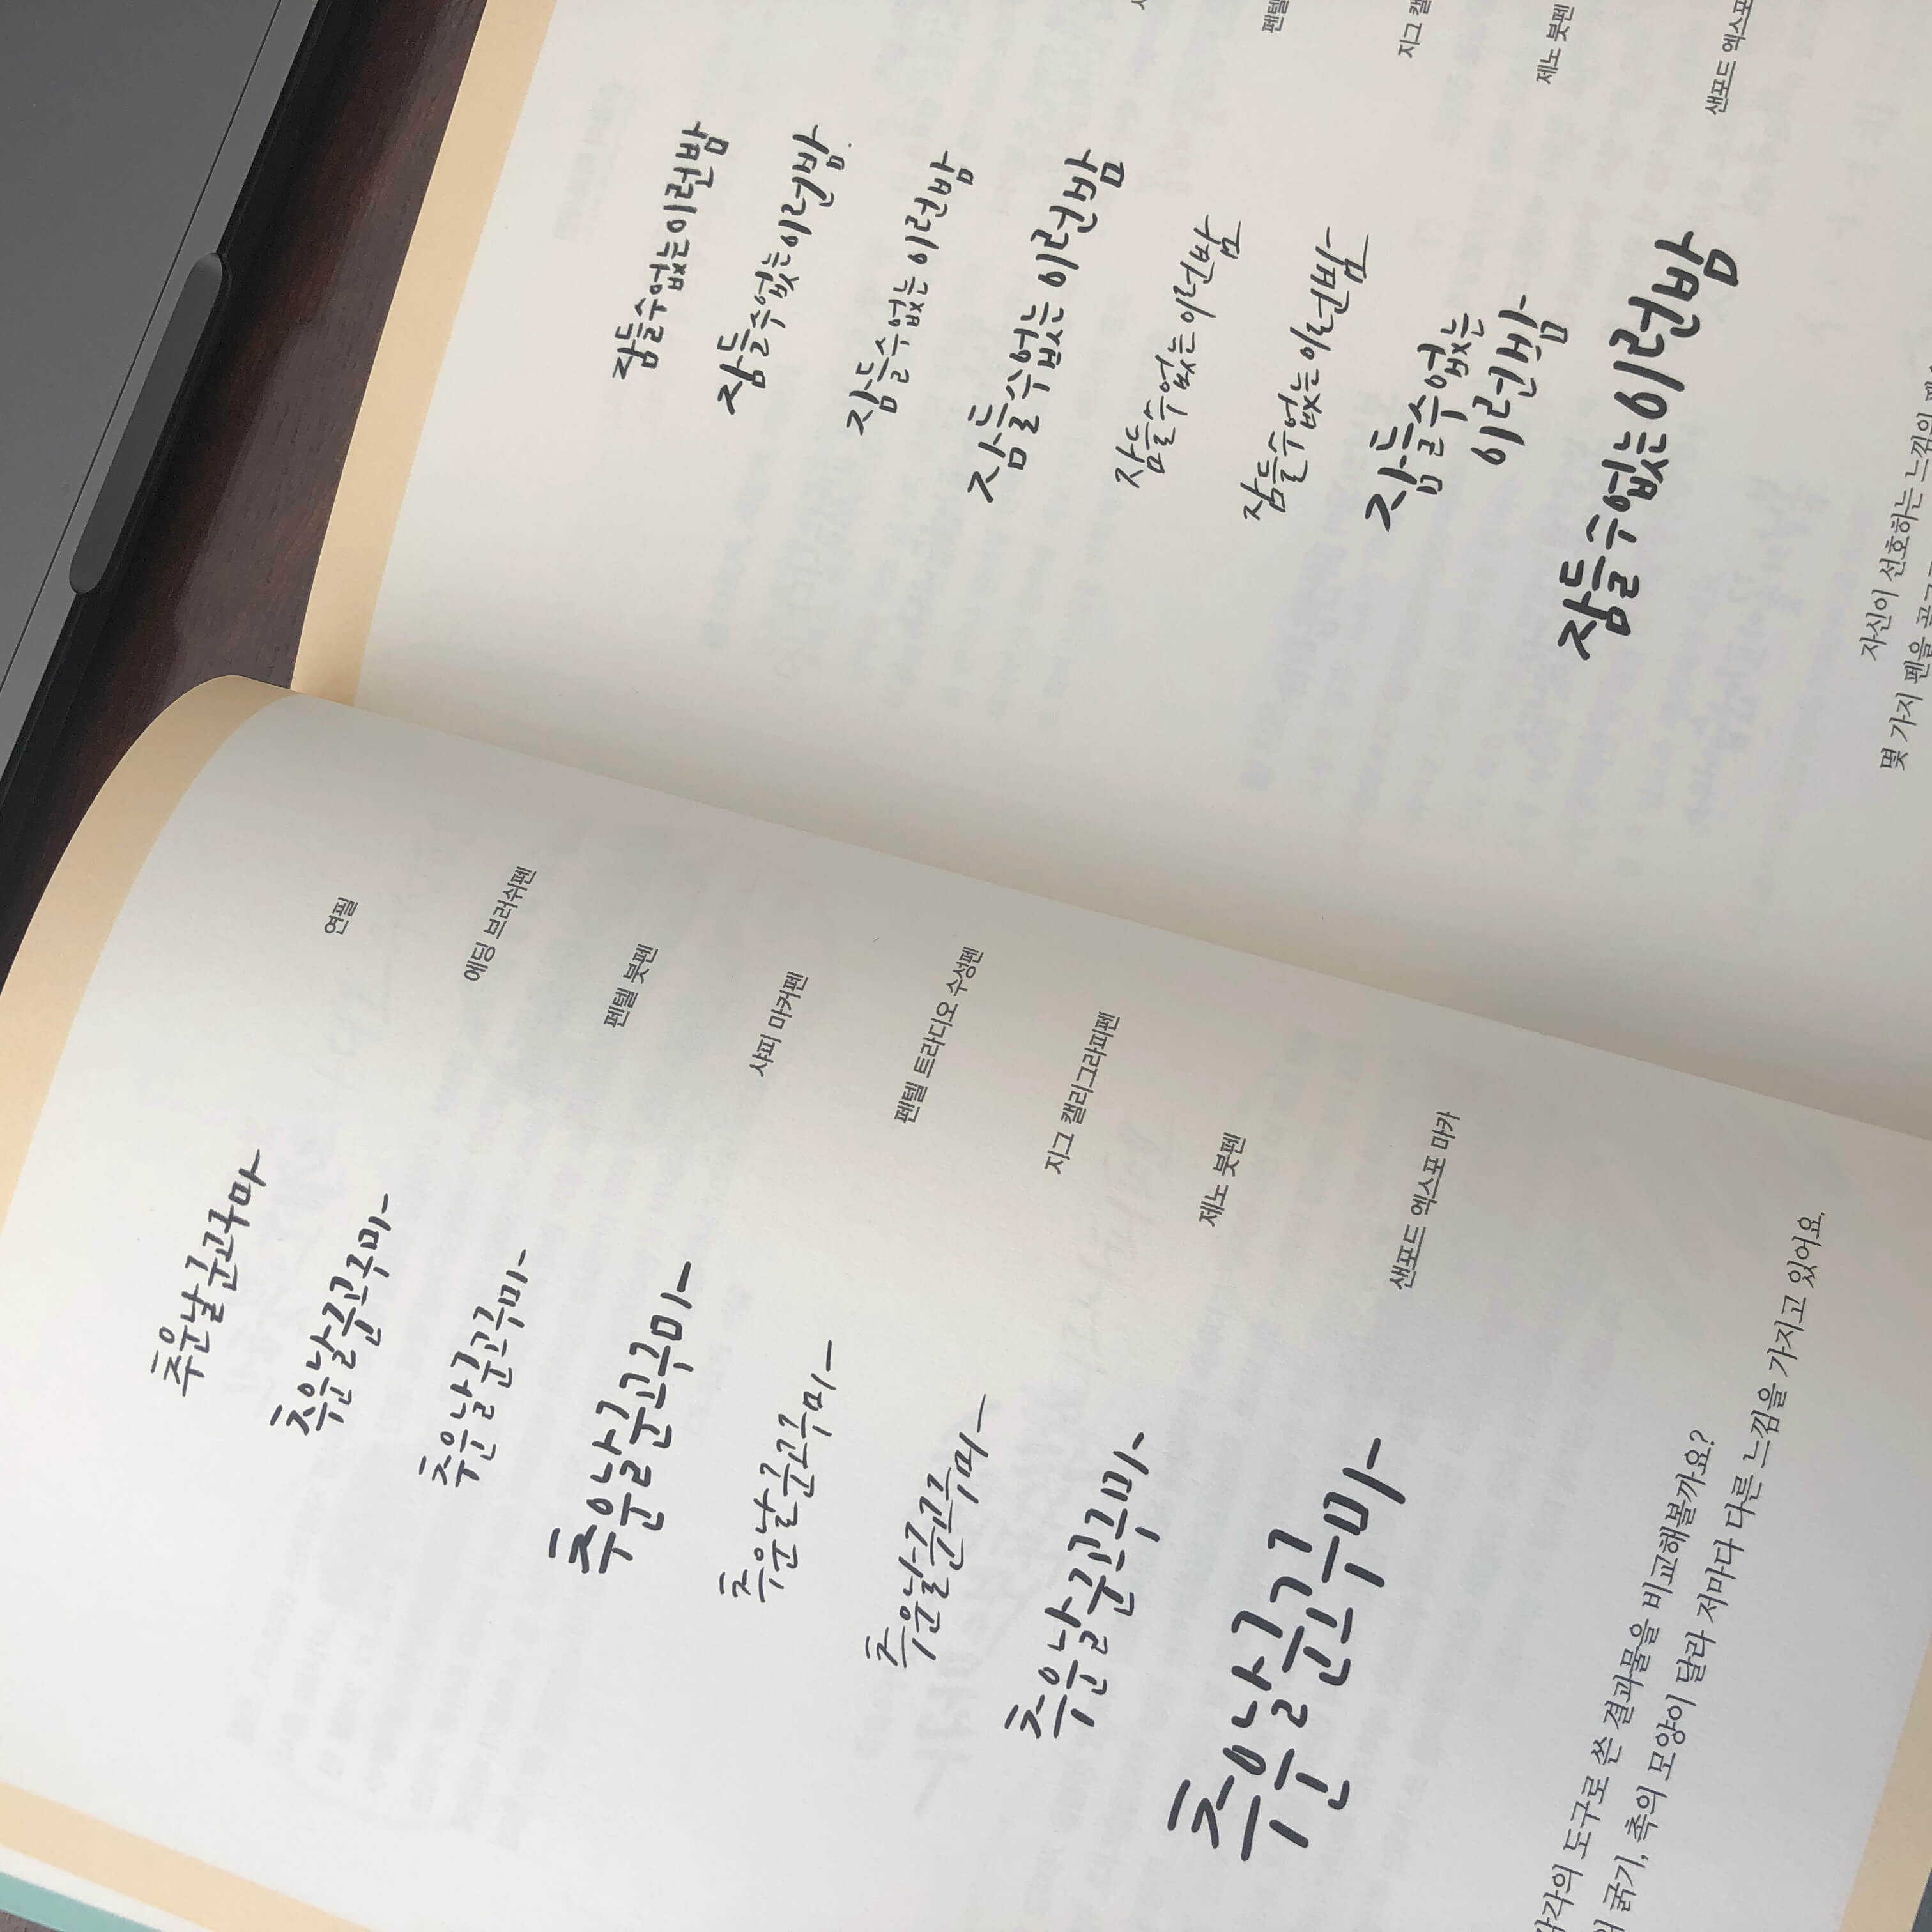 추운날군고구마
연필
추운날군고구마
에딩 브러쉬펜
추운날군고구마
펜텔 붓펜
추운날군고구마
샤피 마커펜
추운날군고구마
펜텔 트라디오 수성펜
추운날군고구마
지그 캘리그라피펜
추운날군고구마
제노 붓펜
추운날군고구마
샌포드 엑스포 마카
도구로 쓴 결과물을 비교해볼까요?
굵기, 촉의 모양이 달라 저마다 다른 느낌을 가지고 있어요.
잠들수없는이런밤
잠들수없는이런밤
잠들수없는이런밤
잠들수없는이런밤
잠들수없는이런밤
펜텔
잠들수없는이런밤
지그
잠들수없는
이런밤
제노 붓펜
잠들수없는이런밤
샌포드 엑스포
자신이 선호하는 느낌의
몇 가지 펜을